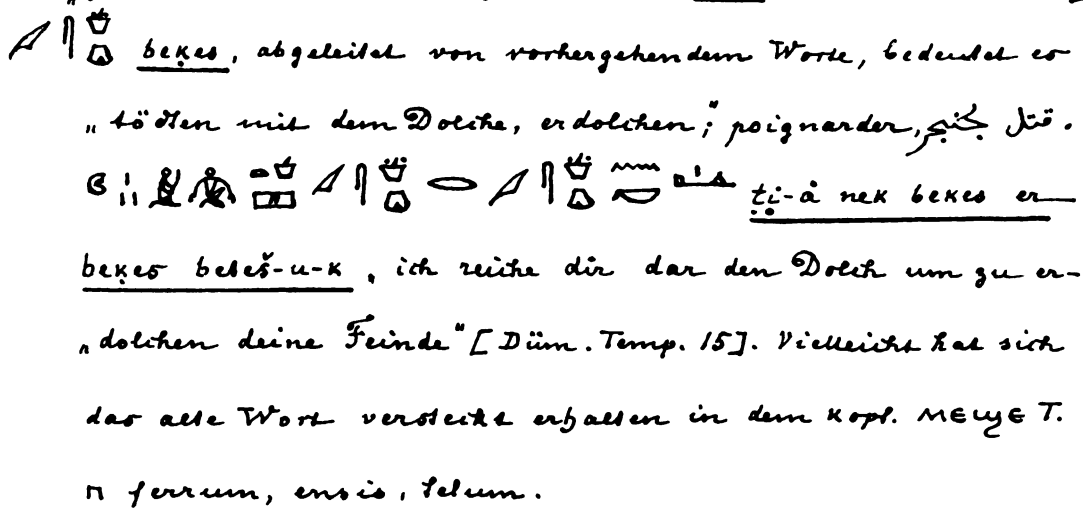 beḳes, abgeleitet von vorhergehendem Worte, bedeutet es
„tödten mit dem Dolche, erdolchen“; poignarder, قتل بخنجر.
ṭi-å nek bekes er
beḳes beteš-u-k, ich reiche dir dar den Dolch um zu er-
„dolchen deine Feinde“ [Düm. Temp. 15]. Vielleicht hat sich
das alte Wort versteckt erhalten in dem kopt. ⲙⲉⲩϣⲉ T.
ⲡ ferrum, ensis, telum.